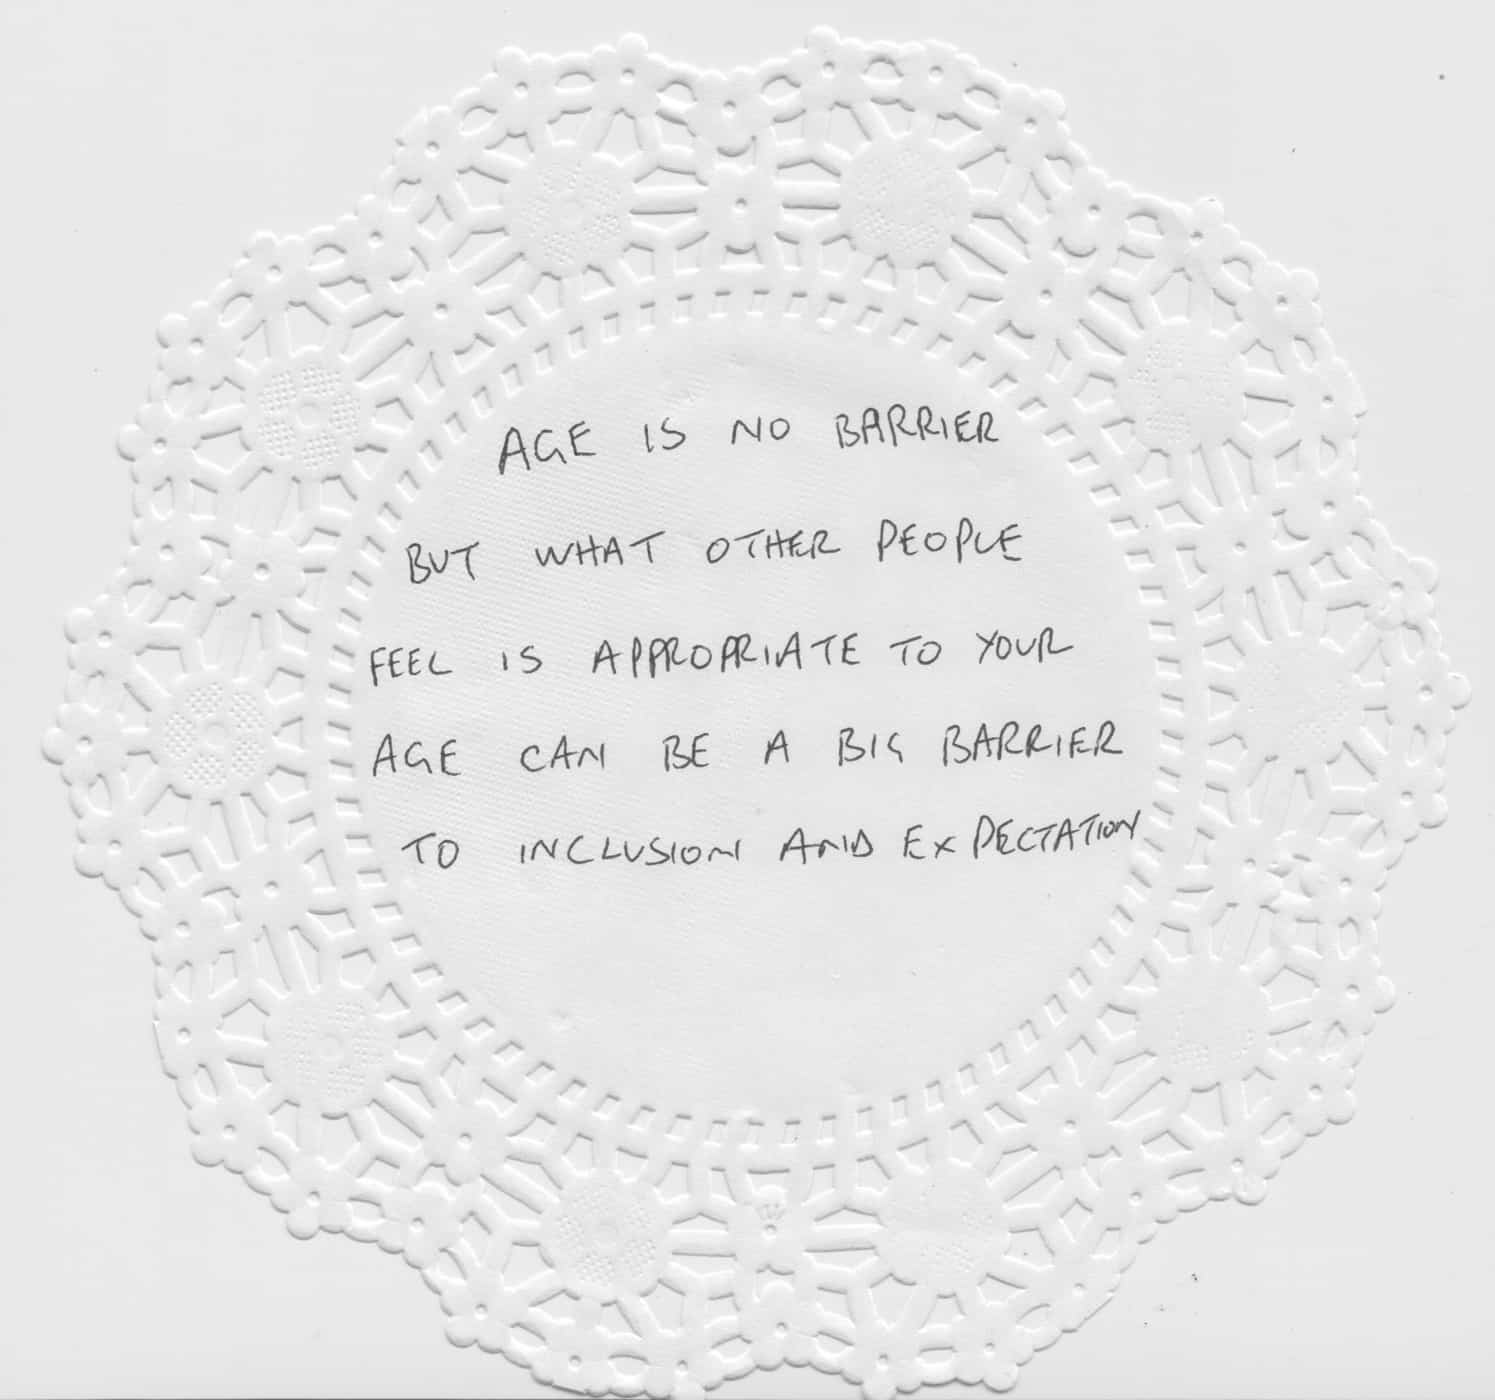 AGE IS NO BARRIER
BUT WHAT OTHER PEOPLE
FEEL IS APPROPRIATE TO YOUR
AGE CAN BE A BIG BARRIER
TO INCLUSION AND EXPECTATION